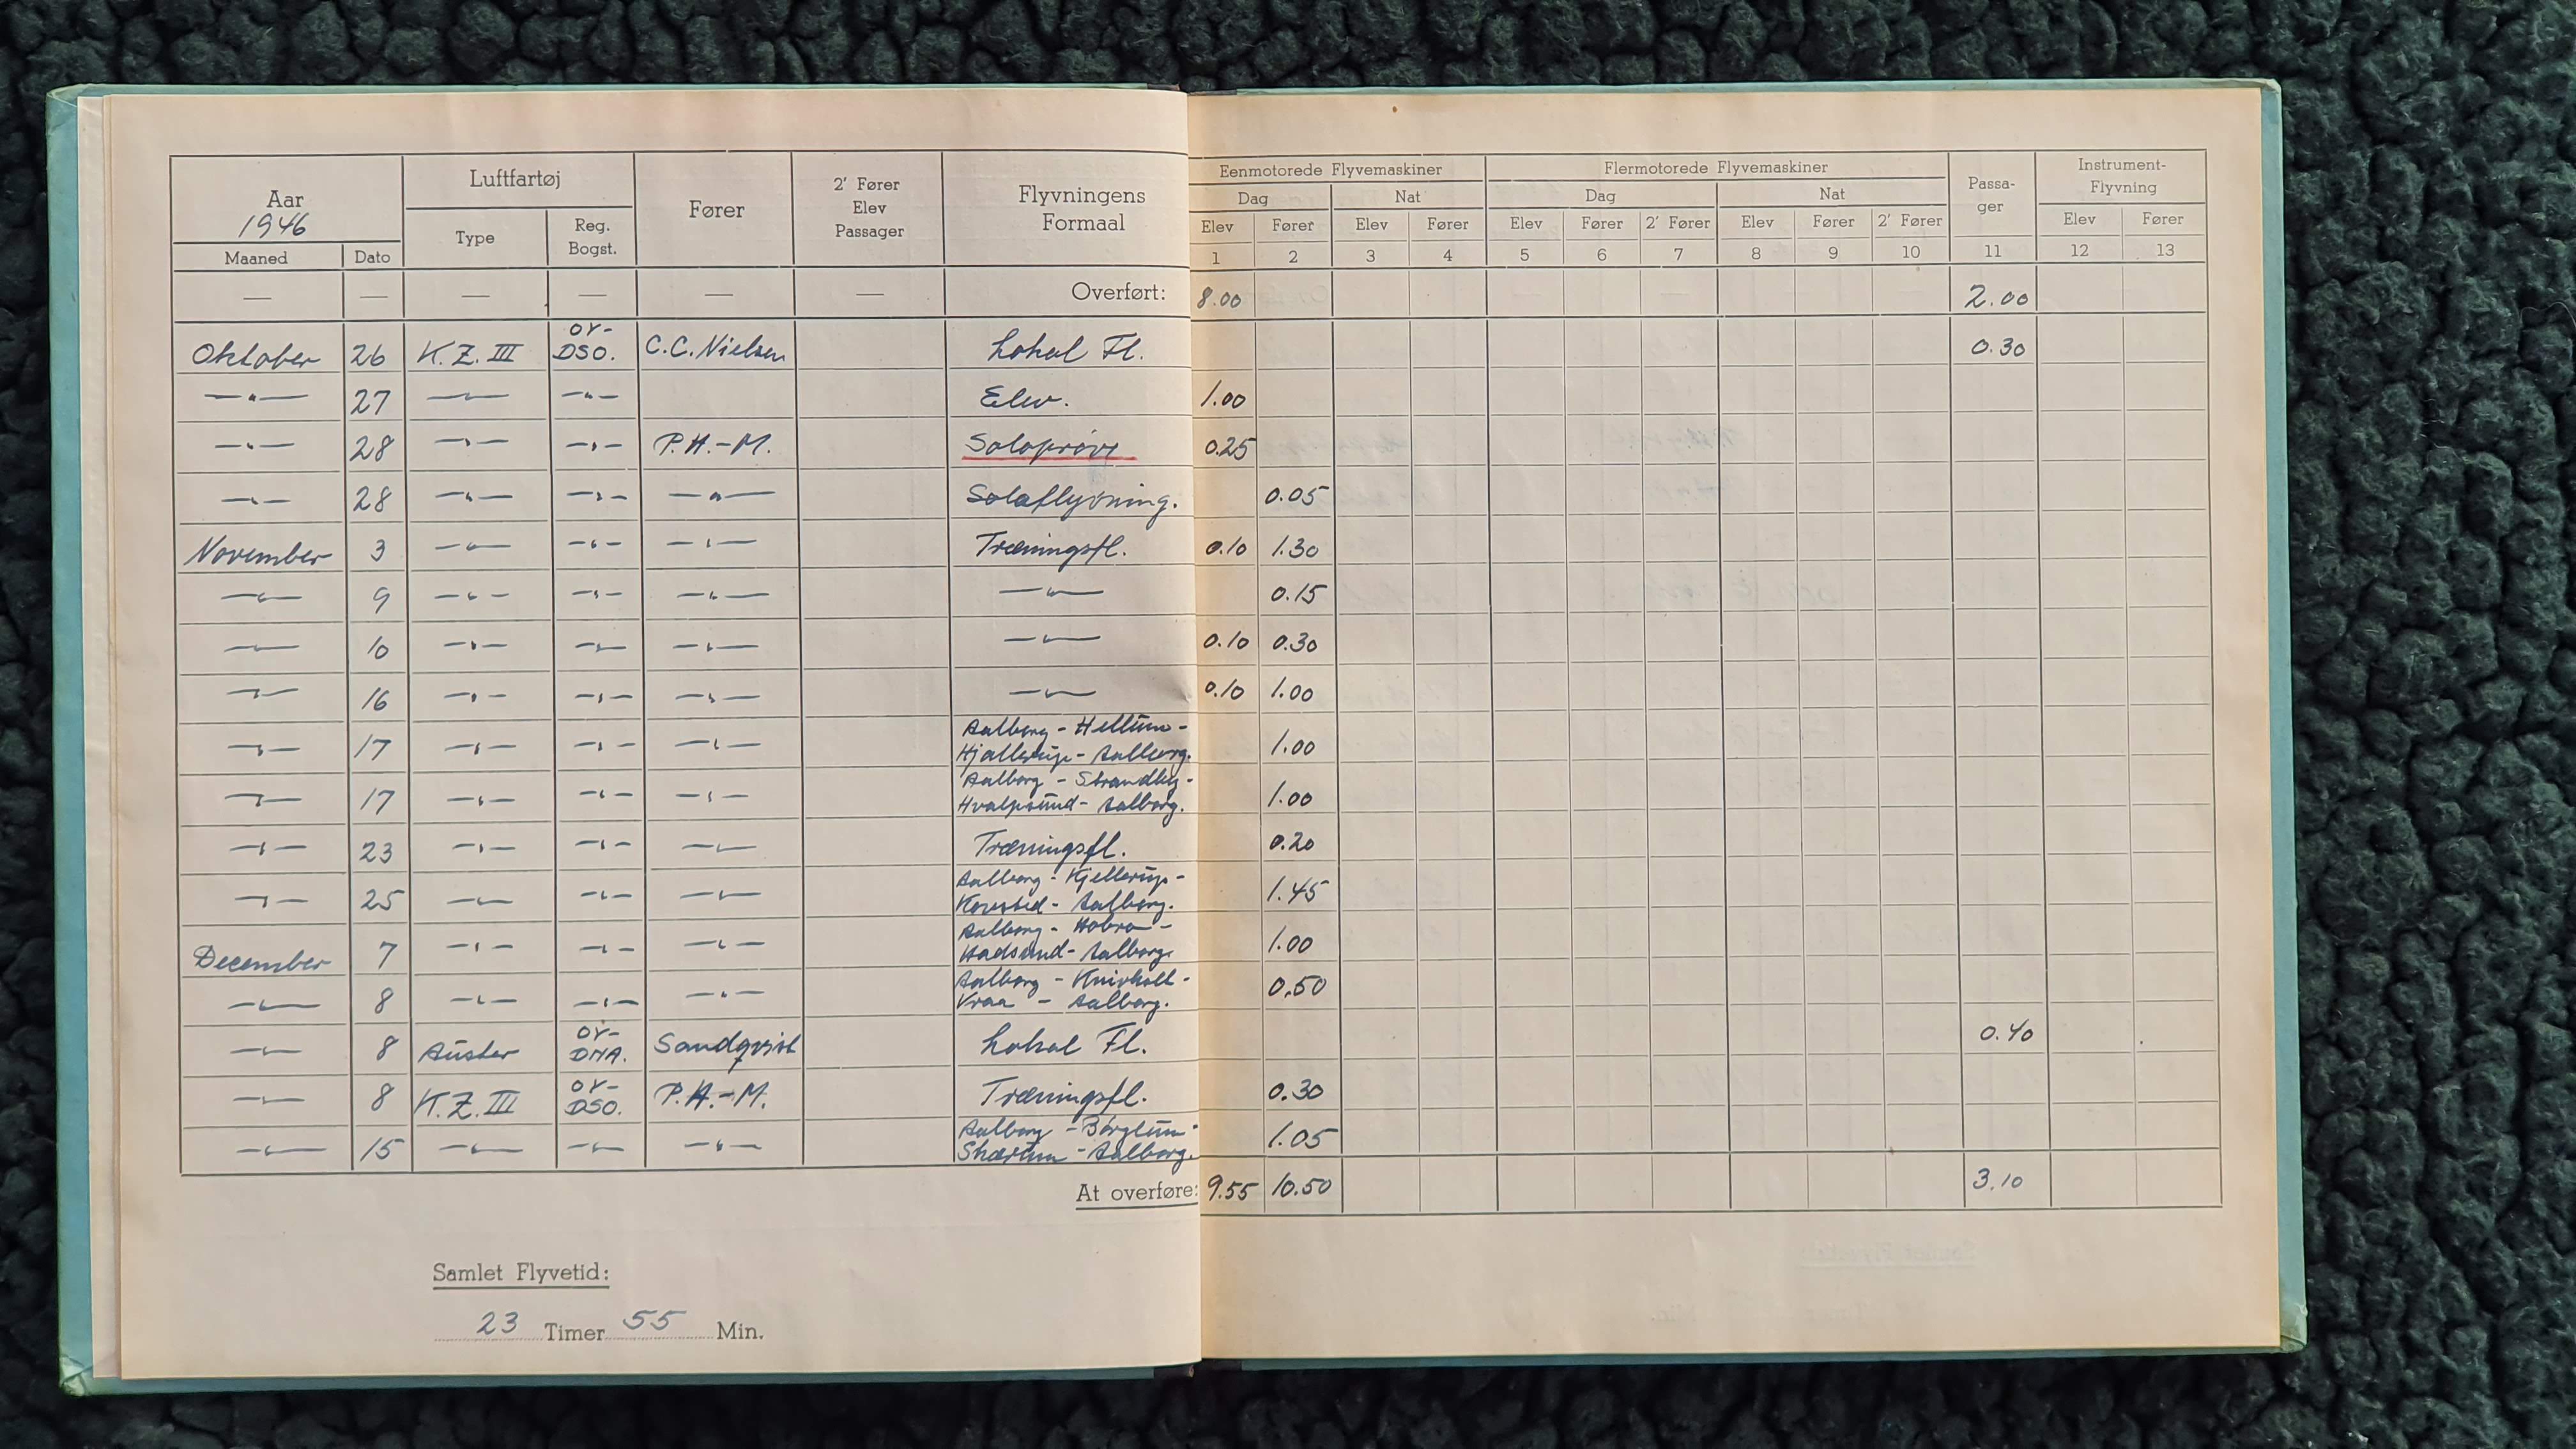 Aar 1946 Luftfartøj Fører 2' Fører Elev Passager Flyvningens Formaal Eenmotorede Flyvemaskiner Flermotorede Flyvemaskiner Passa-ger Instrument-Flyvning
Dag Nat Dag Nat
Maaned Dato Type Reg. Bogst. Elev Fører Elev Fører Elev Fører 2' Fører Elev Fører 2' Fører Elev Fører
1 2 3 4 5 6 7 8 9 10 11 12 13
— — — — — — Overført: 8.00 2.00
Oktober 26 K.Z. III OY-DSO. C.C. Nielsen Lokal Fl. 0.30
—"— 27 —"— —"— Elev. 1.00
—"— 28 —"— —"— P.H.-M. Soloprøve 0.25
—"— 28 —"— —"— —"— Soloflyvning. 0.05
November 3 —"— —"— —"— Træningsfl. 0.10 1.30
—"— 9 —"— —"— —"— —"— 0.15
—"— 10 —"— —"— —"— —"— 0.10 0.30
—"— 16 —"— —"— —"— —"— 0.10 1.00
—"— 17 —"— —"— —"— Aalborg - Hellum -
Hjallerup - Aalborg. 1.00
—"— 17 —"— —"— —"— Aalborg - Strandby -
Hvalpsund - Aalborg. 1.00
—"— 23 —"— —"— —"— Træningsfl. 0.20
—"— 25 —"— —"— —"— Aalborg - Kjellerup -
- Aalborg. 1.45
December 7 —"— —"— —"— Aalborg - Hobro -
Hadsund - Aalborg. 1.00
—"— 8 —"— —"— —"— Aalborg - Knivholt -
Vraa - Aalborg. 0.50
—"— 8 Auster OY-DNA. Sandqvist Lokal Fl. 0.40
—"— 8 K.Z. III OY-DSO. P.H.-M. Træningsfl. 0.30
—"— 15 —"— —"— —"— Aalborg - Børglum -
Skærum - Aalborg. 1.05
At overføre: 9.55 10.50 3.10
Samlet Flyvetid:
23 Timer 55 Min.